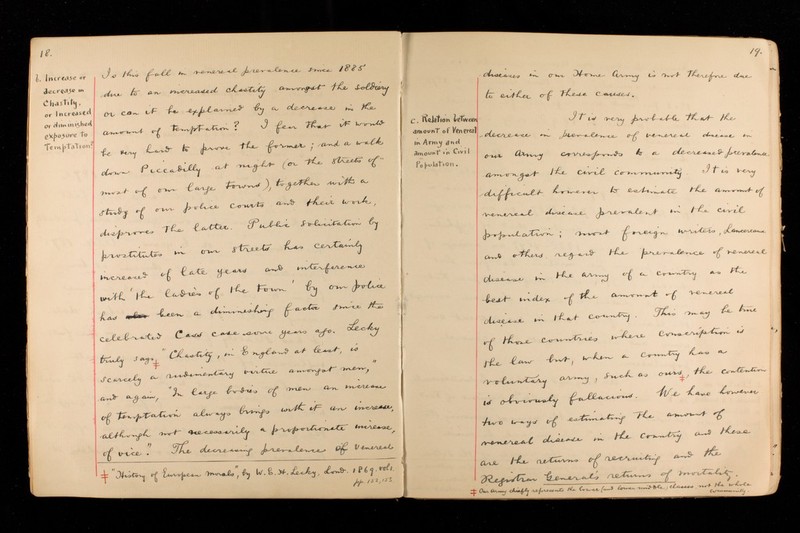 18.
b. Increase or
decrease in
Chastity,
or Increased
or diminished
exposure to
Temptation?
Is this fall in venereal prevalence since 1885
due to an increased chastity amongst the soldiery
or can it be explained by a decrease in the
amount of temptation? I fear that it would
be very hard to prove the former; and a walk
down Piccadilly at night (or the streets of
most of our large towns), together with a
study of our police courts and their work,
disproves the latter. Public Solicitation by
prostitutes in our streets has certainly
increased of late years and interference
with 'the ladies of the town' by our police
has been a diminishing factor since the
celebrated Cass case some years ago. Lecky
truly says, "Chastity, in England at least, is
scarcely a rudimentary virtue amongst men,"
and again, "In large bodies of men an increase
of temptation always brings with it an increase,
although not necessarily a proportionate increase,
of vice." The decreasing prevalence of venereal
‡ "History of European morals", by W. E. H. Lecky, Lond. 1869. vol 1
19.
c. Relation between
amount of Venereal
in Army and
amount in Civil
Population.
diseases in our Home Army is not therefore due
to either of these causes.
It is very probable that the
decrease in prevalence of venereal disease in
our Army corresponds to a decreased prevalence
amongst the civil community. It is very
difficult however to estimate the amount of
venereal disease prevalent in the civil
population; most foreign writers, Lancereaux
and others regard the prevalence of venereal
disease in the army of a country as the
best index of the amount of venereal
disease in that country. This may be true
of those countries where Conscription is
the law but, when a country has a
voluntary army, such as ours‡, the contention
is obviously fallacious. We have however
two ways of estimating the amount of
venereal disease in the country and these
are the returns of recruiting and the
Registrar General's returns of mortality.
‡ Our Army chiefly represents the lower (and lower middle) classes not the whole
community